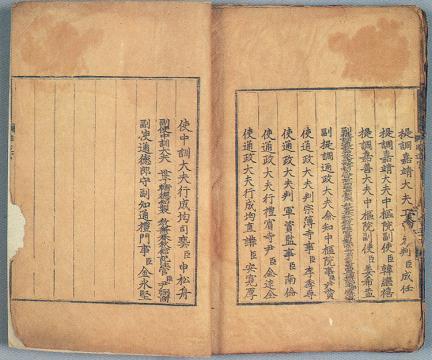 提調嘉靖大夫 判臣成任
提調嘉善大夫中樞院副使臣韓繼禧
提調嘉善大夫中樞院副使臣姜希孟
副提調通政大夫僉知中樞院事臣尹贊
使通政大夫判宗簿寺事臣李孝專
使通政大夫判軍資監事臣南倫
使通政大夫行禮賓寺尹臣金達全
使通政大夫行成均直講臣安寬厚
使中訓大夫行成均司藝臣申松舟
副使中訓大夫
副使通德郎守副知通禮門事臣金永堅